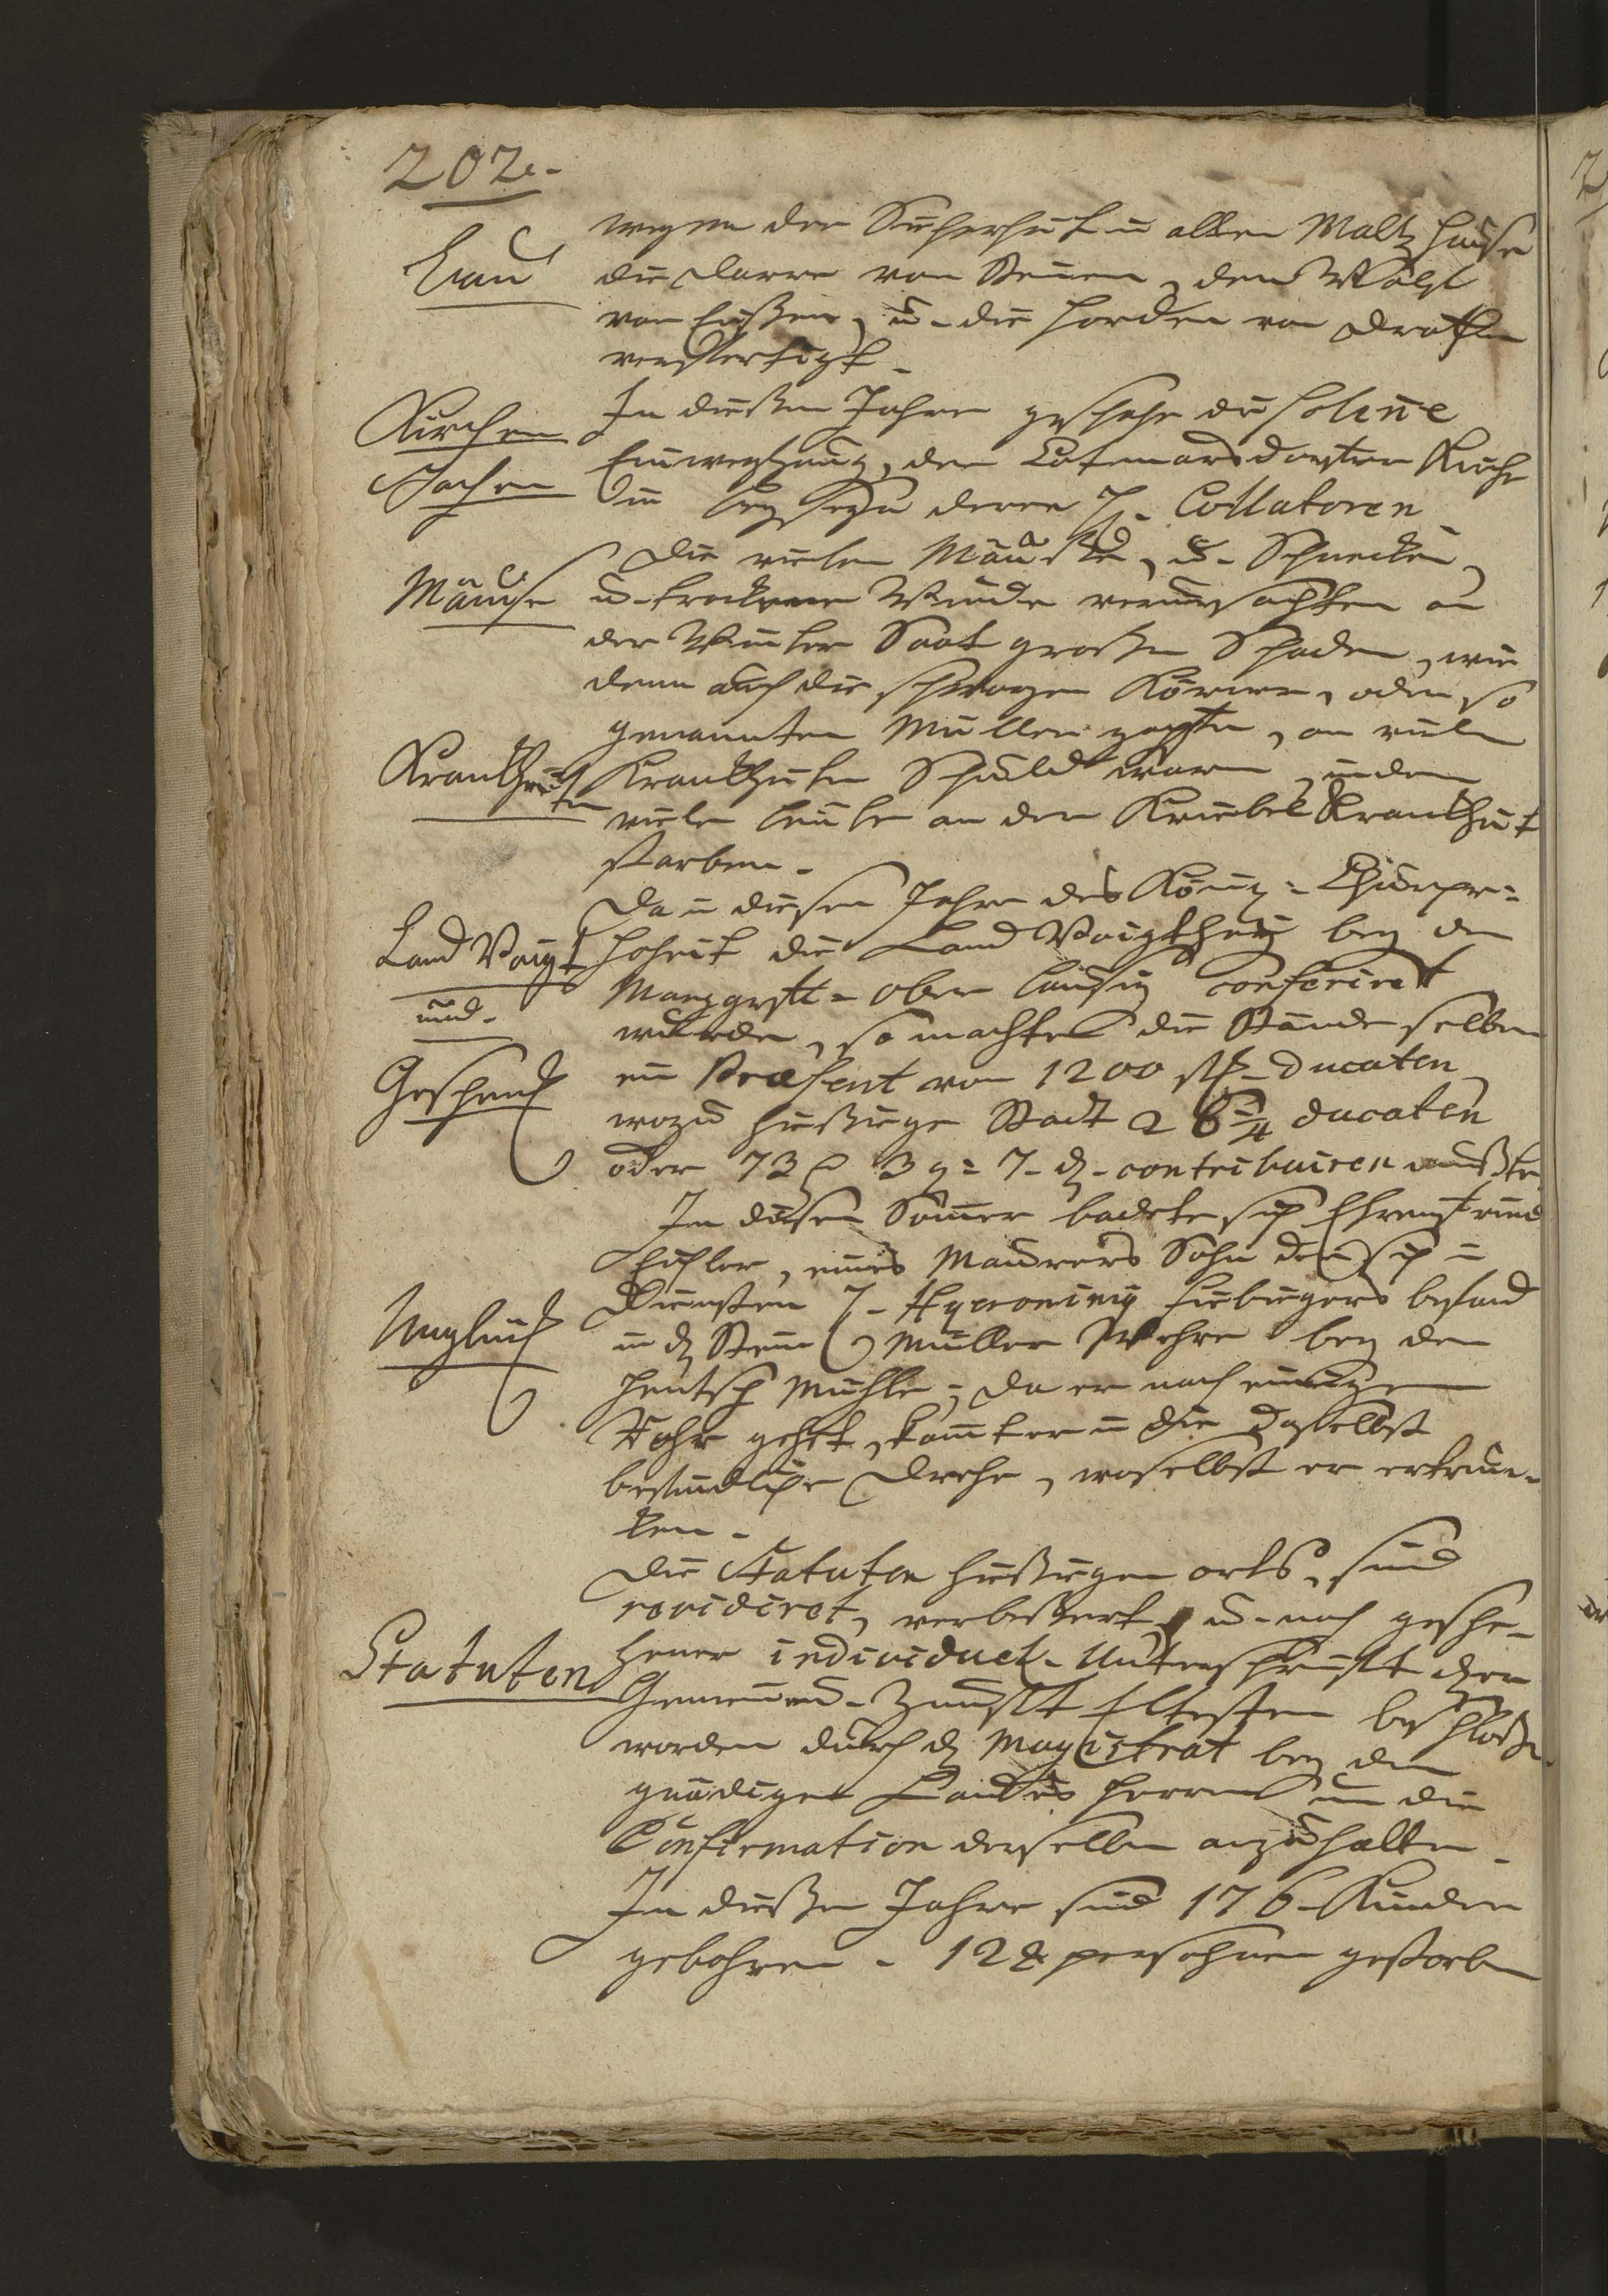 202.
wegen der Sicherheit in allen Maltz Hause
Bau
die Darre von Steinen, den Wölf
von Eißen, u. die Horden von Drath
verfertigt.
Kirchen
Sachen
In dießen Jahre geschahe die solenne
Einweyhung der Lotemarsdorfer Kirche
in beyseyn derer H. Collatoren
Mäuse
Die vielen Mäuse, u. Schnecken,
u. trockene Winde verursachten an
der Winter Saat großen Schaden, wie
denn auch die schwarzen Körner, oder so
genannten Mutter zapfen, an vielen
Krankheiten
Krankheiten Schuld waren, indem
viele Leute an der Kriebel Krankheit
starben.
Land Voigt
und
Geschenck
Da in diesen Jahre des König. Churpr.
Hoheit die Land Voigthey bey dem
Marggrft. Ober Lausitz conferiret
wurde, so machten die Stände selben
ein Præsent von 1200 st. Ducaten
wozu hießige Stadt 26 3/4 ducaten
oder 73 3 g. 7 d. contribuiren mußte
In diesen Sommer badete sich Ehrenfried
Eichler, eines Maurers Sohn der sich in
Unglück
Diensten H. Hyeronimy Fiebigers befand
in der Stein Müller Wehre bey der
Hentsch Mühle; da er nach einigen
Rohr gehet, kommt er in die daselbst
befindliche Drehe, woselbst er ertrun-
ken.
Statuten
Die Statuten hießigen orts, sind
revidiret, verbeßert, u. nach gesche-
hener individuel. Unterschrifft der
Gemein u. Zunfft Eltesten beschloßen
worden durch d. Magistrat bey dem
gnädigen Landes Herren um die
Confirmation derselben anzuhalten.
In dießen Jahre sind 176 Kinder
gebohren. 124 persohnen gestorben